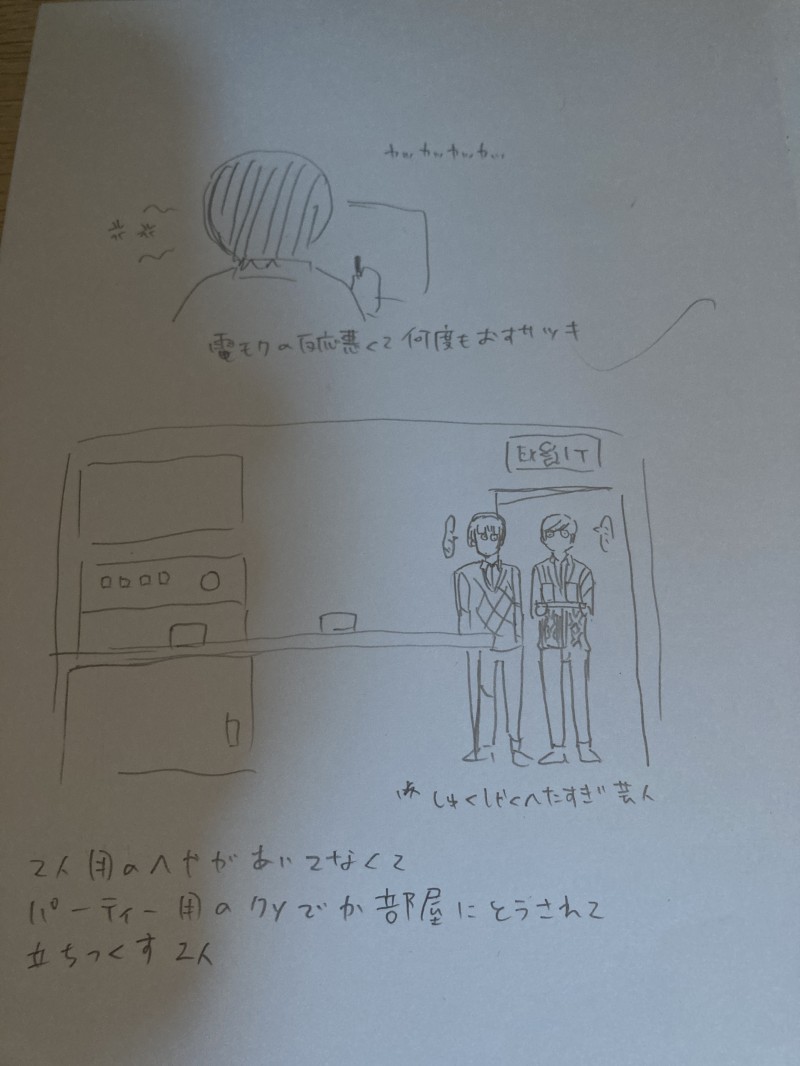 カッカッカッカッ…
電モクの反応悪くて何度もおすサツキ
EXIT
※しゅくしゃくへたすぎ芸人
2人用のへやがあいてなくて
パーティー用のクソでか部屋にとうされて
立ちつくす2人